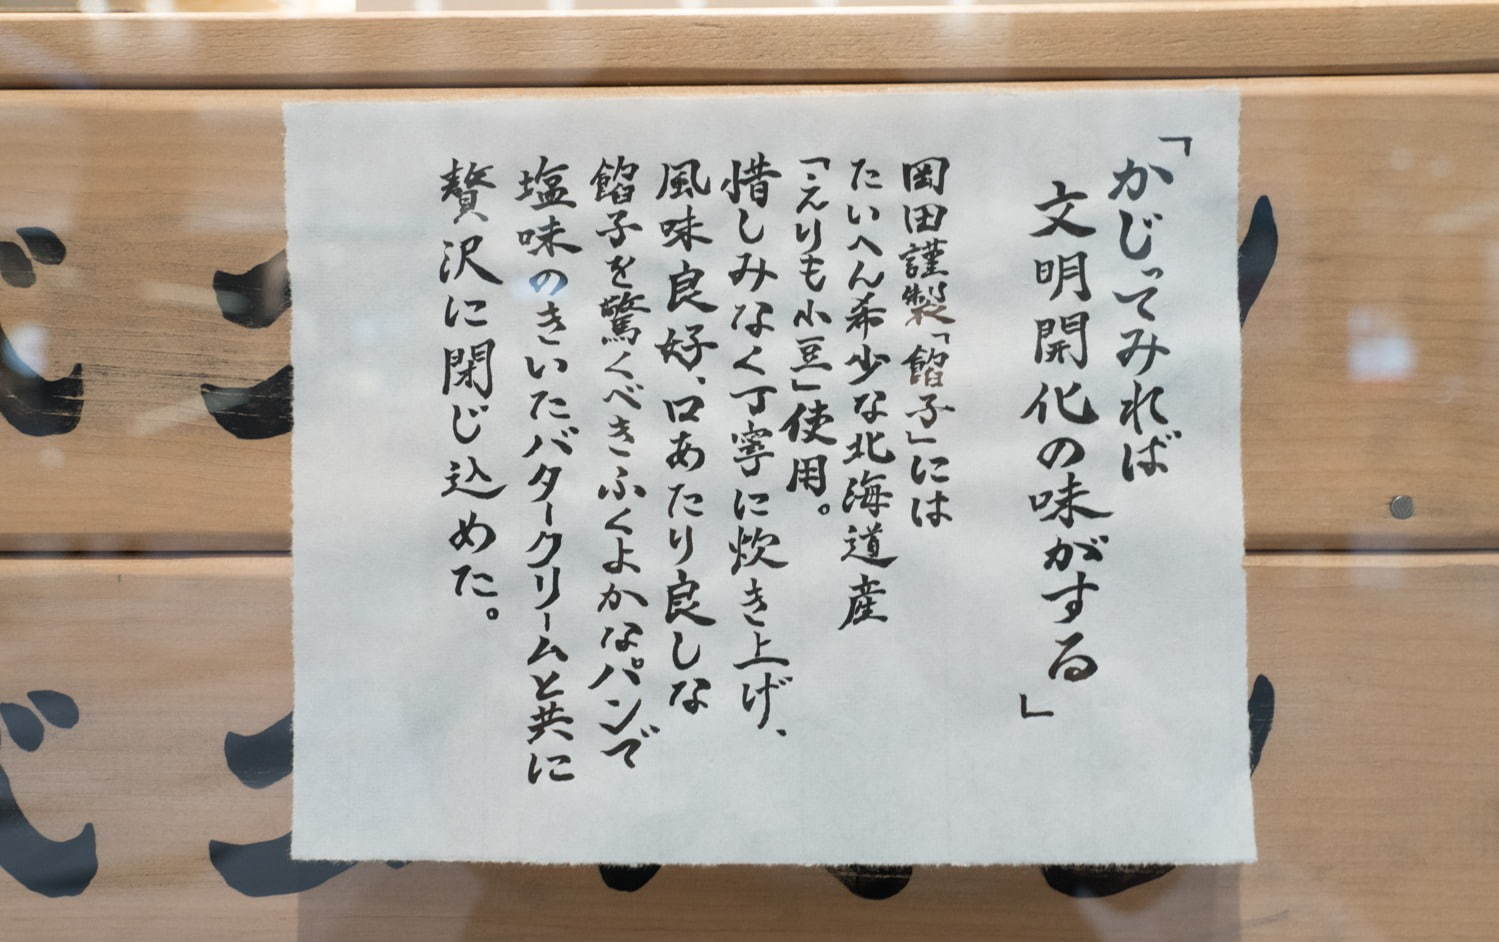 「かじってみれば
文明開化の味がする」
岡田謹製「餡子」には
たいへん希少な北海道産
「えりも小豆」使用。
惜しみなく丁寧に炊き上げ、
風味良好、口あたり良しな
餡子を驚くべきふくよかなパンで
塩味のきいたバタークリームと共に
贅沢に閉じ込めた。